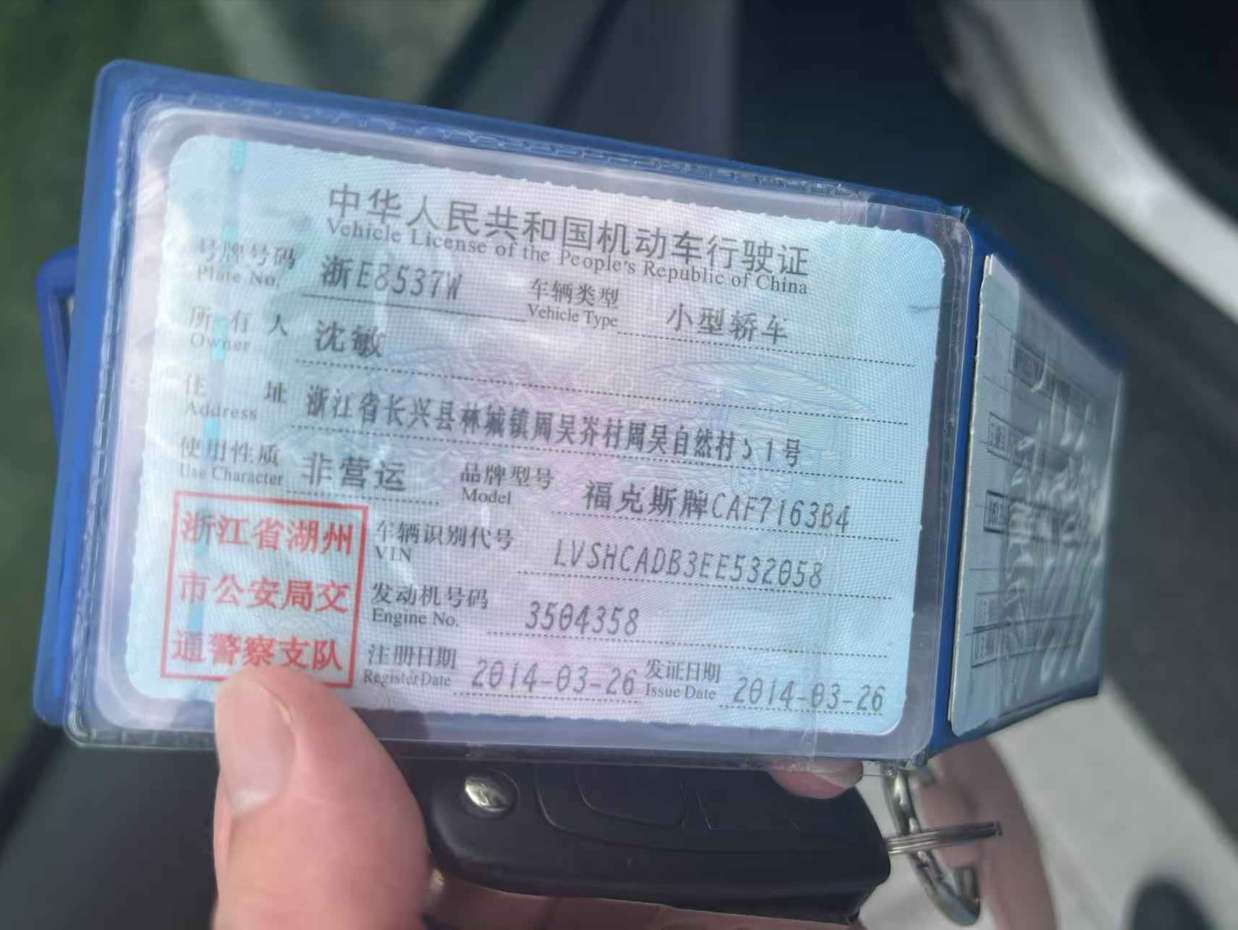 中华人民共和国机动车行驶证
Vehicle License of the People's Republic of China
号牌号码 浙E8537W 车辆类型 小型轿车
Plate No. Vehicle Type
所有人 沈敏
Owner
住址 浙江省长兴县林城镇周吴岕村周吴自然村51号
Address
使用性质 非营运 品牌型号 福克斯牌CAF7163B4
Use Character Model
浙江省湖州
市公安局交
通警察支队
车辆识别代号 LVSHCADB3EE532058
VIN
发动机号码 3504358
Engine No.
注册日期 2014-03-26 发证日期 2014-03-26
Register Date Issue Date